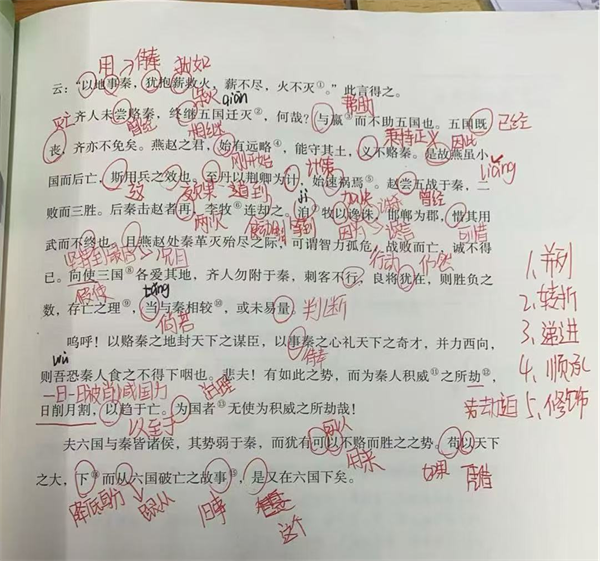 用 侍奉 犹如
云：“以地事秦，犹抱薪救火，薪不尽，火不灭①。”此言得之。
qiān 帮助
齐人未尝赂秦，终继五国迁灭②，何哉？与嬴③而不助五国也。五国既
曾经 相继 秉持正义 因此 已经
丧，齐亦不免矣。燕赵之君，始有远略④，能守其土，义不赂秦。是故燕虽小
刚开始 计策
国而后亡，斯用兵之效也。至丹以荆卿为计，始速祸焉⑤。赵尝五战于秦，二
这 效果 等到 曾经
败而三胜。后秦击赵者再，李牧⑥连却之。洎⑦牧以谗诛，邯郸为郡，惜其用
两次 等到 因为 可惜
武而不终也。且燕赵处秦革灭殆尽之际，可谓智力孤危，战败而亡，诚不得
坚持到最后 况且 行动
已。向使三国⑧各爱其地，齐人勿附于秦，刺客不行，良将犹在，则胜负之
假使
数，存亡之理⑨，当与秦相较⑩，或未易量。判断
倘若
呜呼！以赂秦之地封天下之谋臣，以事秦之心礼天下之奇才，并力西向，
侍奉
则吾恐秦人食之不得下咽也。悲夫！有如此之势，而为秦人积威⑪之所劫⑫，
治理
日削月割，以趋于亡。为国者⑬无使为积威之所劫哉！
以至于
夫六国与秦皆诸侯，其势弱于秦，而犹有可以不赂而胜之之势。苟以天下
之大，下⑭而从六国破亡之故事⑮，是又在六国下矣。
跟从 旧事 这个
1、并列
2、转折
3、递进
4、顺承
5、修饰